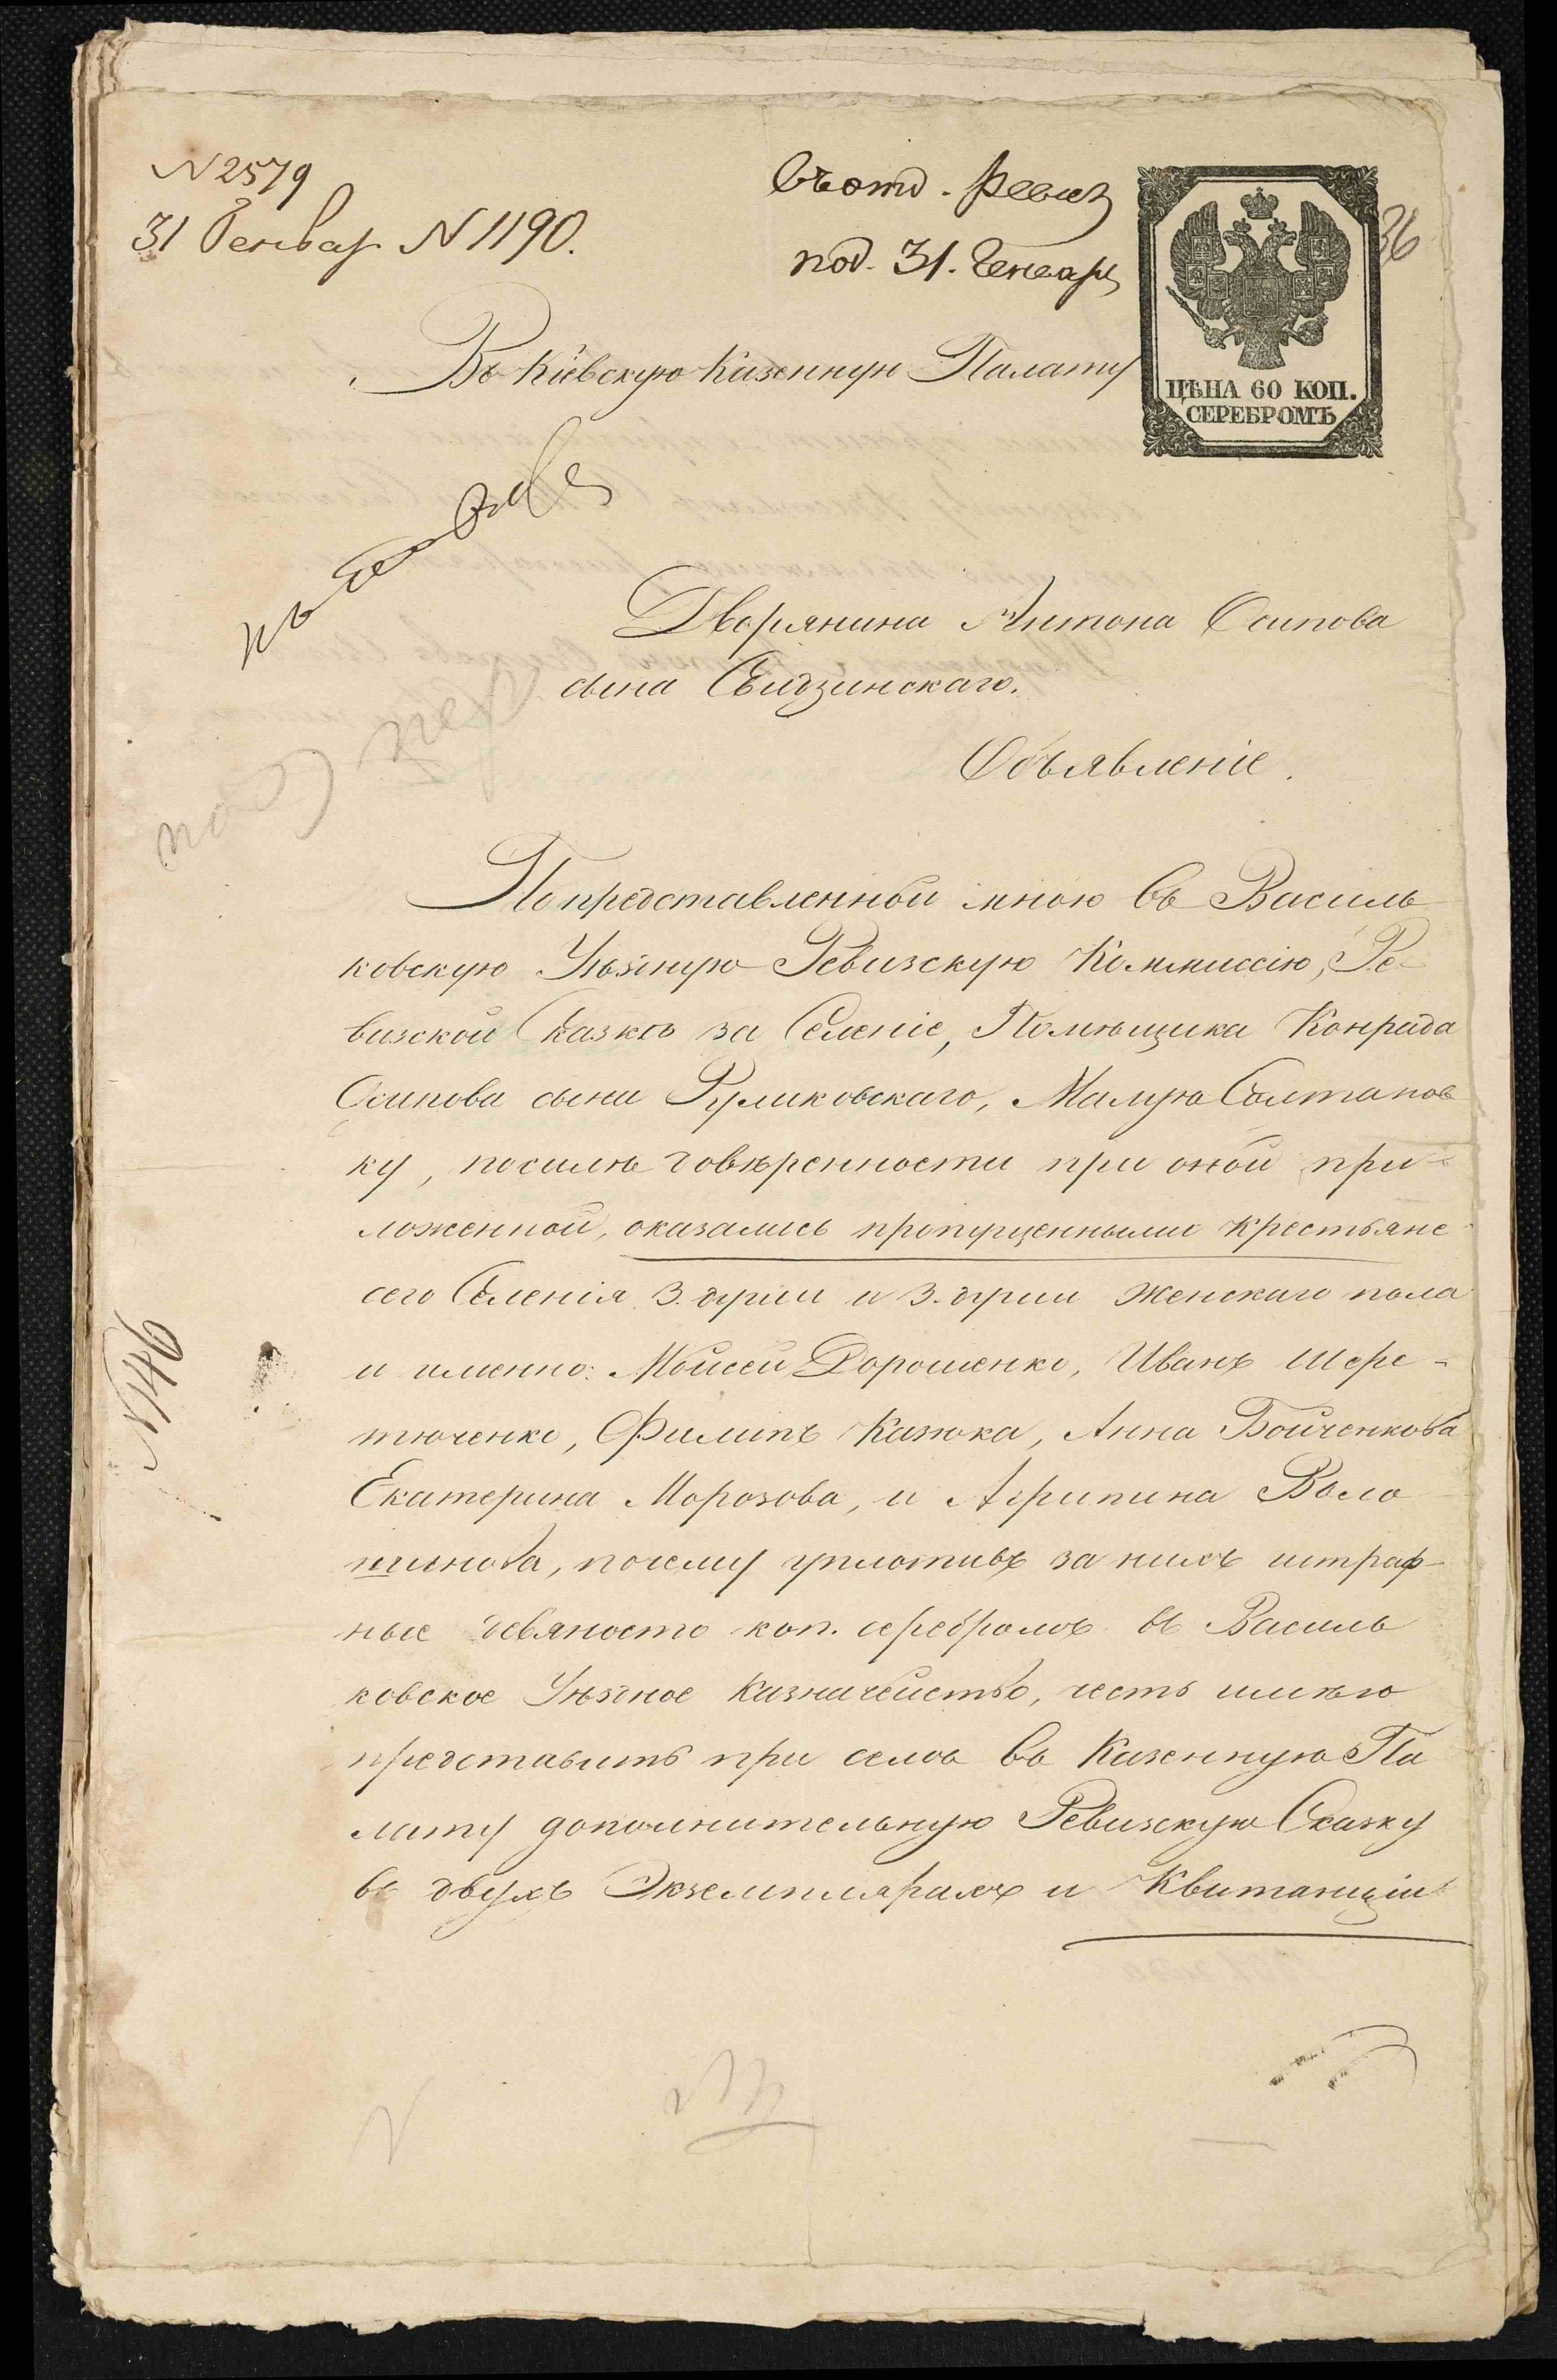 N 2579
31 Генвар N 1190.
Въ отд. Ревиз
под. 31. Генваря
36
ЦѢНА 60 КОП.
СЕРЕБРОМЪ
Въ Кіевскую Казенную Палату
Дворянина Антона Осипова
сына Свидзинскаго.
Объявленіе.
По представленной мною въ Василь
ковскую Уѣздную Ревизскую Коммиссію, Ре-
визской Сказкѣ за Селеніе, Помѣщика Конрада
Осипова сына Руликовскаго, Малую Солтанов
ку, по силѣ довѣренности при оной при-
ложенной, оказались пропущенными крестьяне
сего Селенія 3. души и 3. души женскаго пола
и именно: Мойсей Дорошенко, Иванъ Шере-
тюченко, Филипъ Казюка, Анна Бойченкова
Екатерина Морозова, и Агрипина Воло
шинова, почему уплотивъ за нихъ штраф-
ные девяносто коп. серебромъ въ Василь
ковское Уѣздное Казначейство, честь имѣю
представить при семъ въ Казенную Па
лату дополнительную Ревизскую Сказку
въ двухъ Экземплярахъ и Квитанціи
N 146